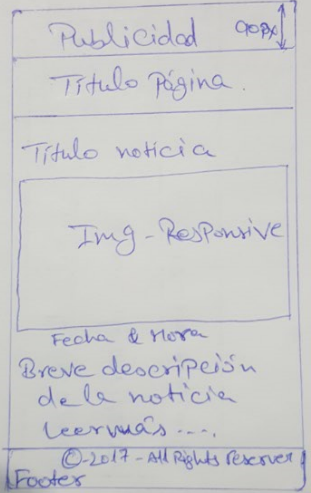 Publicidad 90px
Título Página.
Título noticia
Img-Responsive
Fecha & Hora
Breve descripción
de la noticia
Leer más ....
©-2017-All Rights reserver
Footer